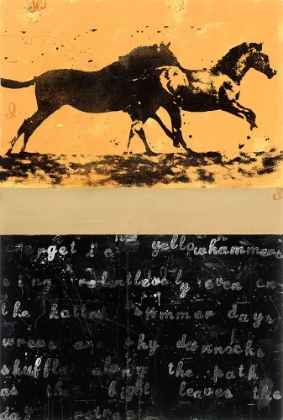 yellowhammers
relentlessly even on
the hottest summer days,
wrens and shy dunnocks
shuffle along the path
as the light leaves the
day retreat